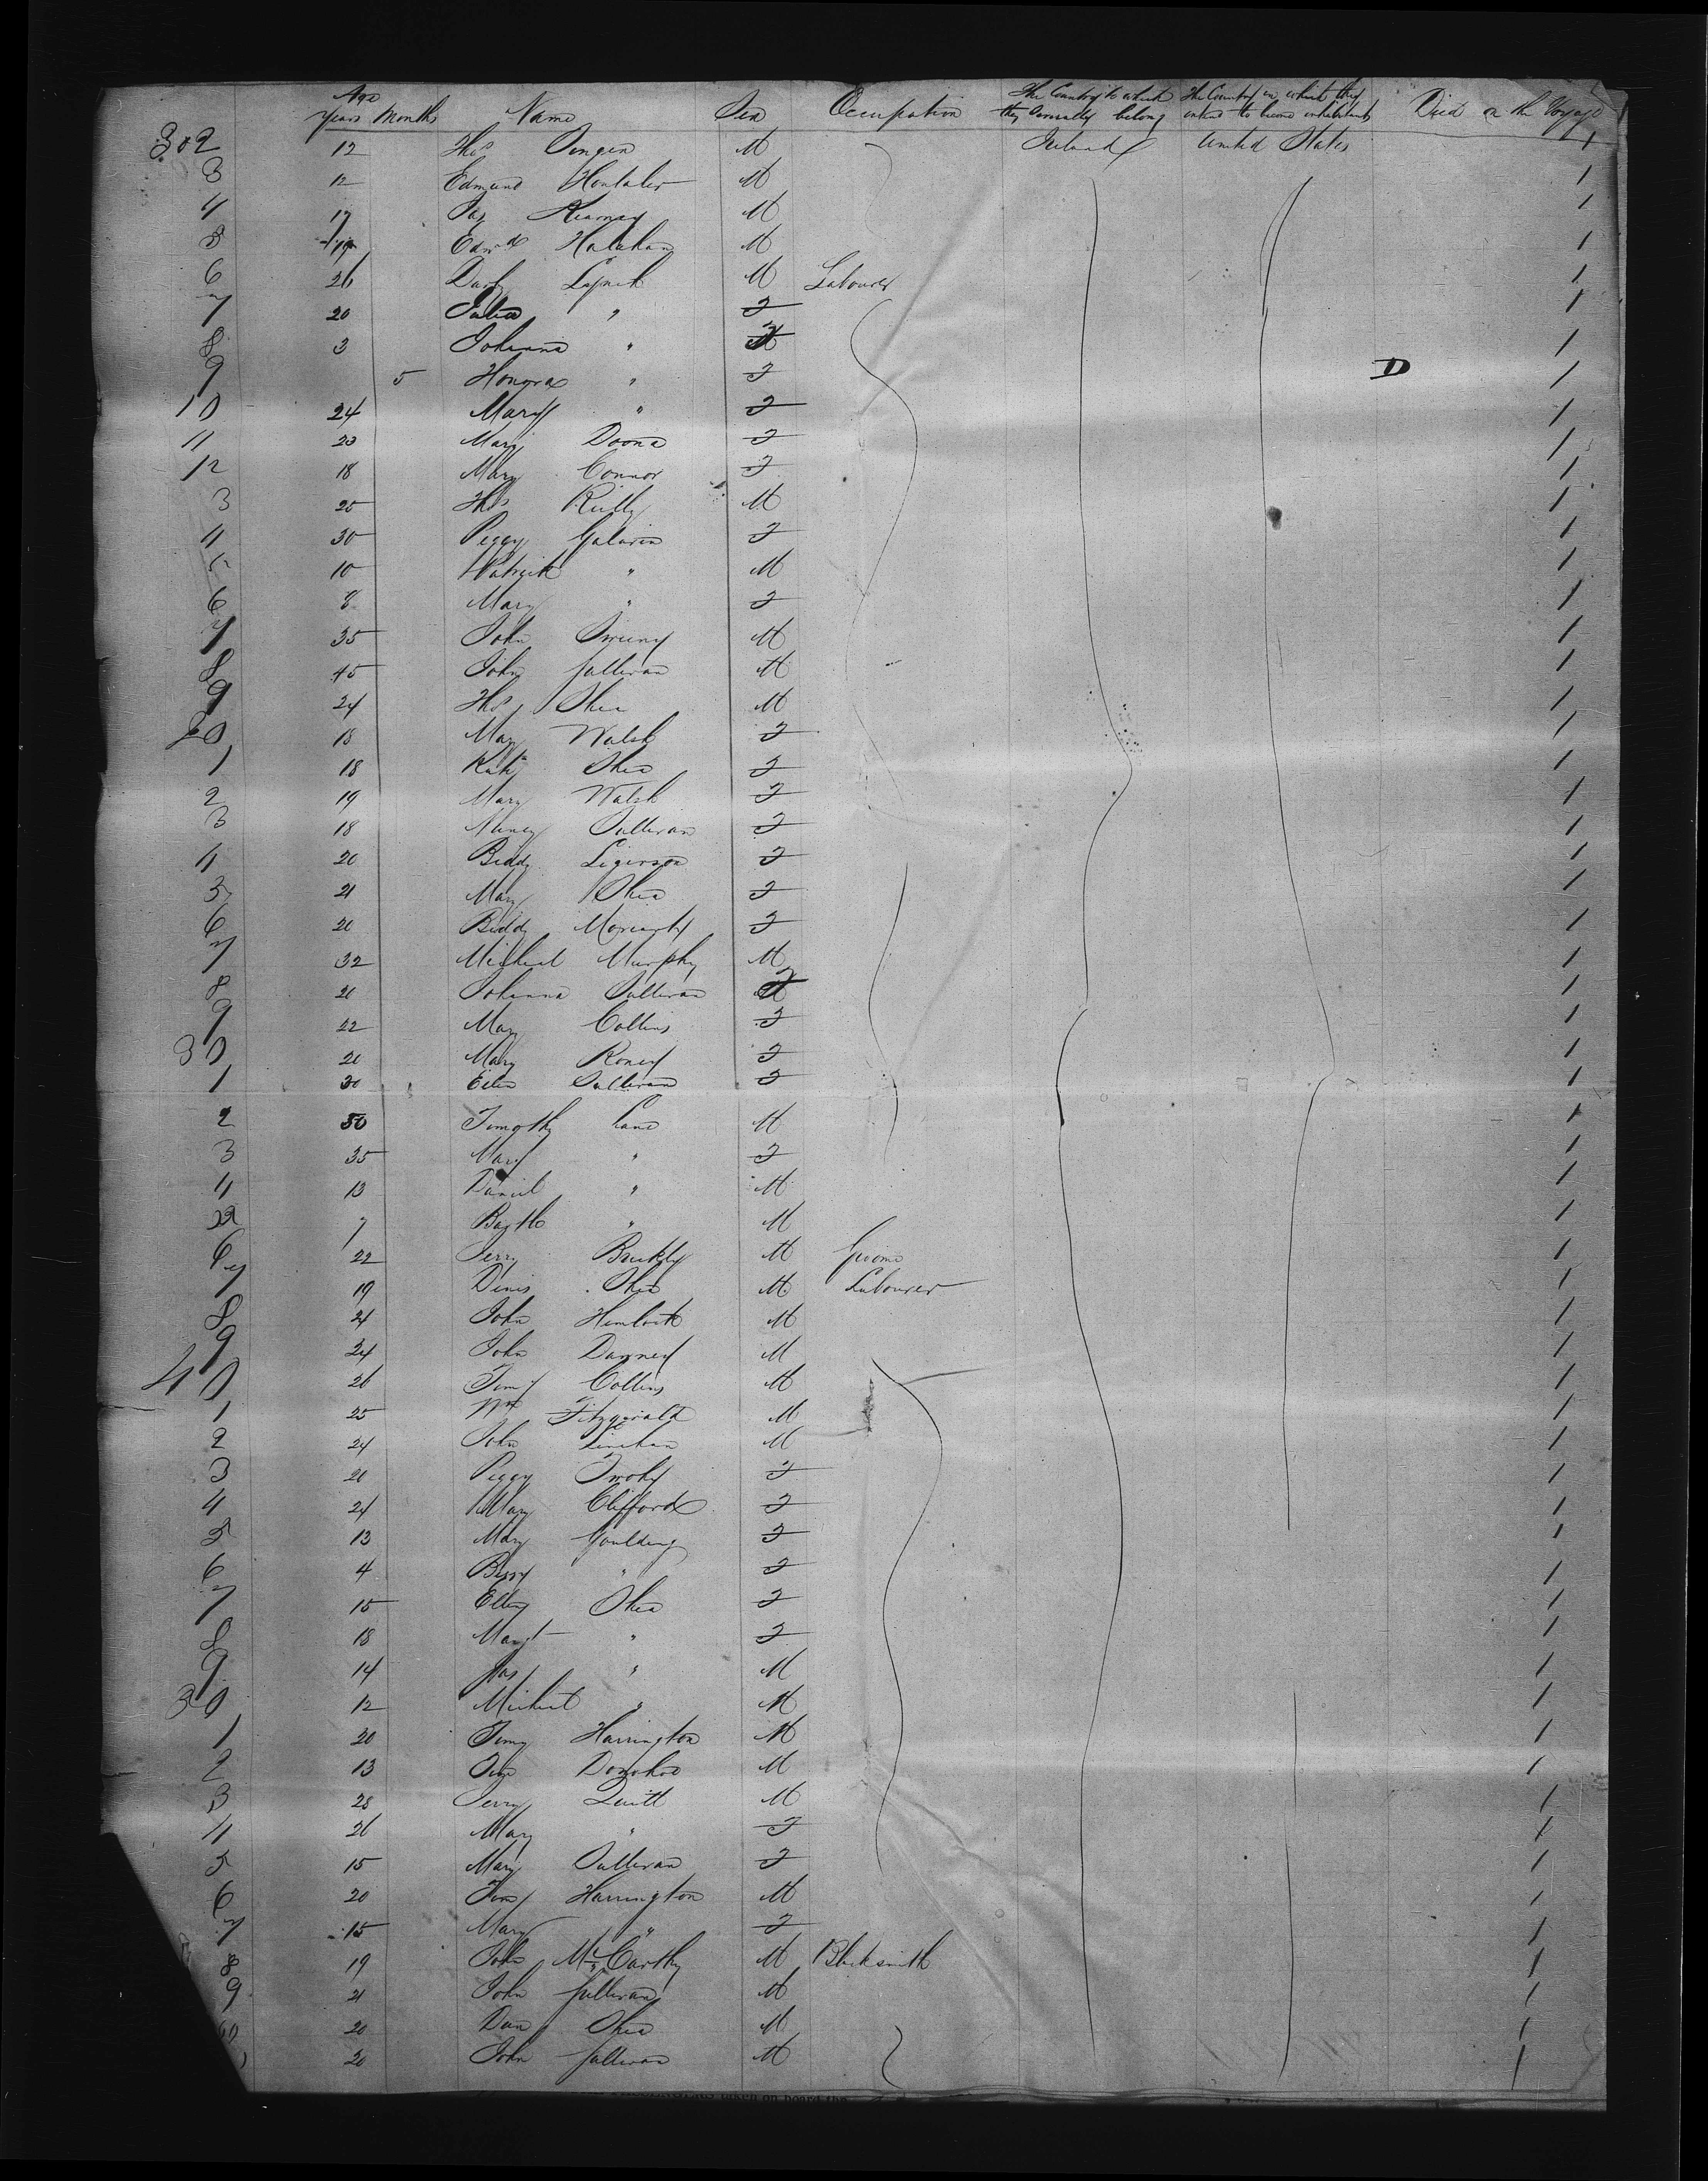 Age
Years Months Name Sex Occupation The Country to which they severally belong The Country in which they intend to become inhabitants Died on the Voyage
302 12 Thos M Ireland United States 1
3 12 Edmund M 1
4 17 Jas Kearney M 1
5 Edwd Halahan M 1
6 26 Darby Lynch M Labourer 1
7 20 Julia " F 1
8 3 Johanna " F 1
9 5 Honora " F D 1
10 24 Mary " F 1
11 20 Mary Doona F 1
12 18 Mary Connor F 1
3 25 Thos Reilly M 1
4 30 Peggy Galavin F 1
5 10 Patrick " M 1
6 8 Mary " F 1
7 35 John Sweeny M 1
8 45 John Sullivan M 1
9 24 Thos Shea M 1
20 18 Mary Walsh F 1
1 18 Kate Shea F 1
2 19 Mary Walsh F 1
3 18 Nancy Sullivan F 1
4 20 Biddy Ligerson F 1
5 21 Mary Shea F 1
6 20 Biddy Moriarty F 1
7 32 Michael Murphy M 1
8 20 Johanna Sullivan F 1
9 22 Mary Collins F 1
30 20 Mary Roney F 1
1 30 Ellen Sullivan F 1
2 50 Timothy Lane M 1
3 35 Mary " F 1
4 13 Daniel " M 1
5 7 Barth " M 1
6 22 Jerry Buckley M Groom 1
7 19 Denis Shea M Labourer 1
8 24 John M 1
9 24 John M 1
40 26 Timy Collins M 1
1 25 Wm Fitzgerald M 1
2 24 John Linehan M 1
3 20 Peggy F 1
4 24 Mary Clifford F 1
5 13 Mary Goulding F 1
6 4 Bessy " F 1
7 15 Ellen Shea F 1
8 18 Margt " F 1
9 14 Jas " M 1
50 12 Michael " M 1
1 20 Timy Harrington M 1
2 13 Donohoe M 1
3 28 Jerry Quill M 1
4 26 Mary " F 1
5 15 Mary Sullivan F 1
6 20 Timy Harrington M 1
7 15 Mary " F 1
8 19 John McCarthy M Blacksmith 1
9 21 John Sullivan M 1
60 20 Dan Shea M 1
1 20 John Sullivan M 1
taken on board the